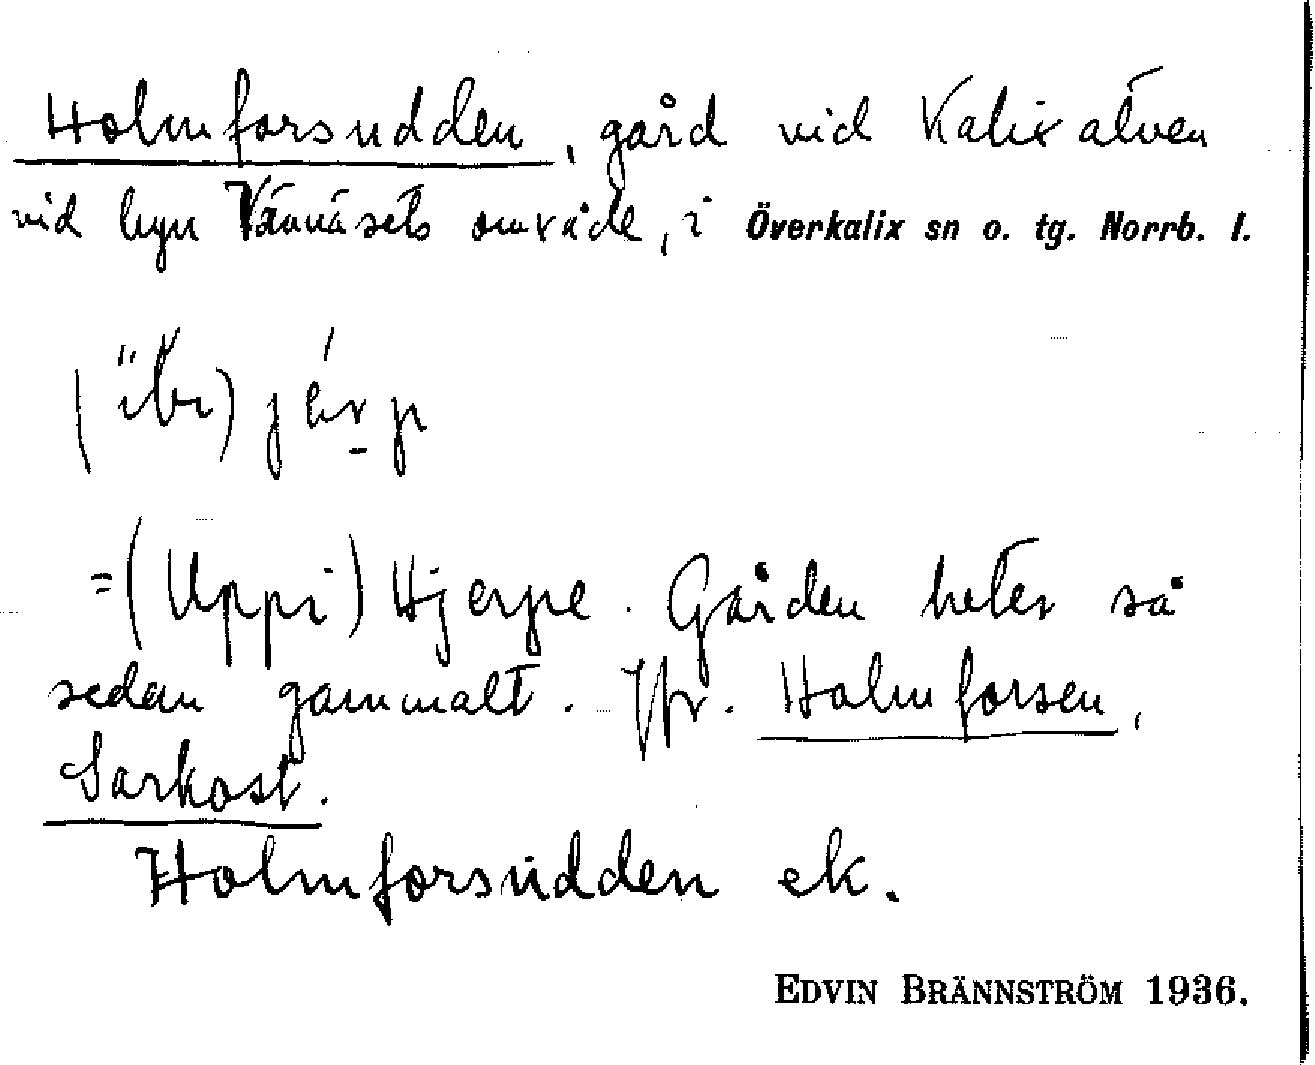 Holmforsudden, gård vid Kalixälven
vid byn Vännäsets område, i Överkalix sn o. tg. Norrb. l.
=(Uppi) Hjerpe. Gården heter så
sedan gammalt. Jfr. Holmforsen,
Sarkost.
Holmforsudden ek.
EDVIN BRÄNNSTRÖM 1936.